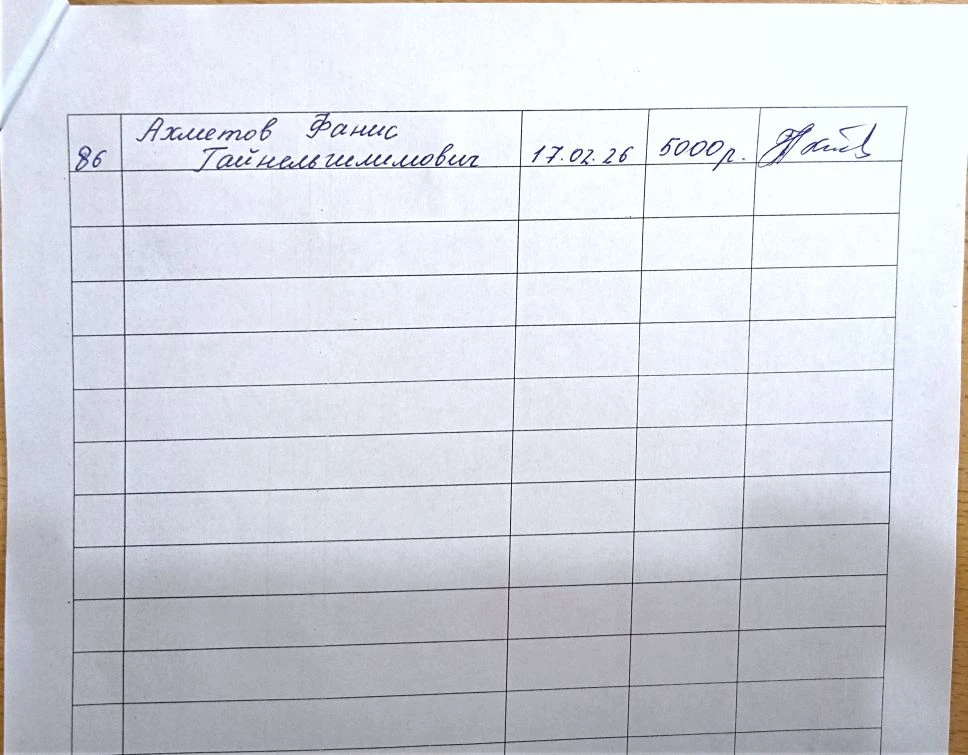 Ахметов Фанис
86 Гайнельгилимович 17.02.26 5000р.